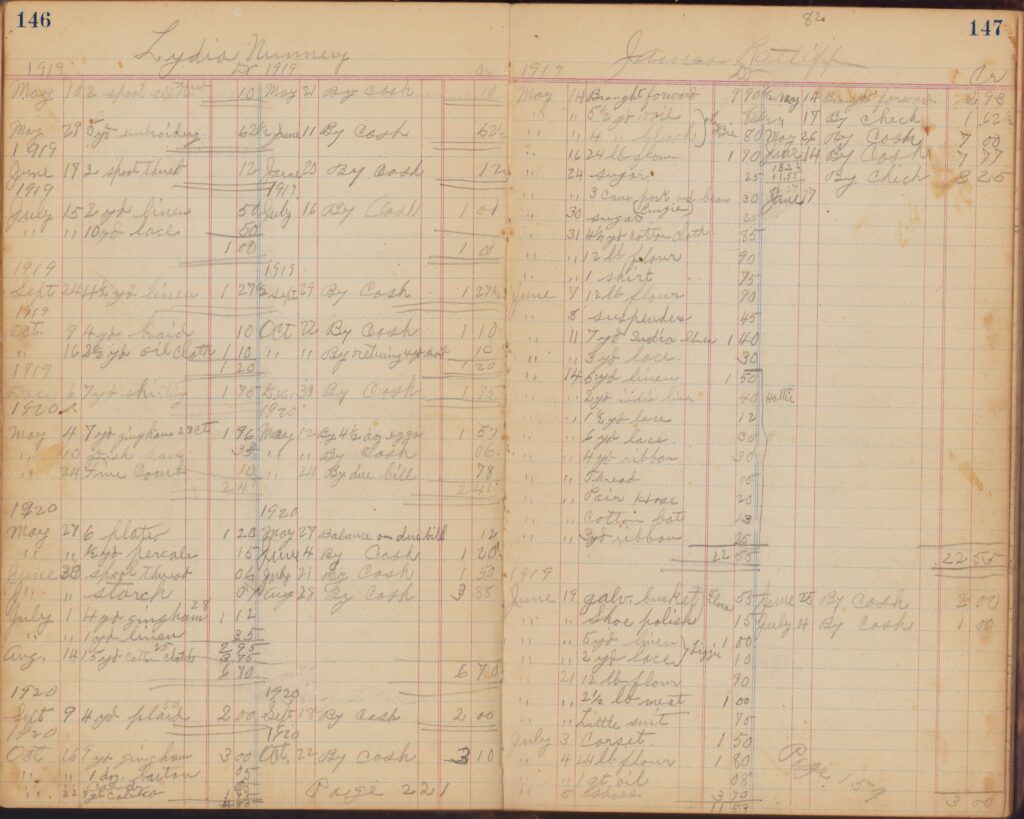 146
Lydia Nunnery
1919 Dr 1919 Cr
May 10 2 spool silk thread 10 May 21 By Cash 10
May 29 5 yd embroidery 62½ June 11 By Cash 62½
1919
June 19 2 spool thread 12 June 20 By Cash 12
1919
July 15 2 yd linen 50 July 16 By Cash 1 01
" " 10 yd lace 50
1 00
1919 1919
Sept 24 4½ yd linen 1 27½ Sept 29 By Cash 1 27½
1919
Oct. 9 4 yd braid 10 Oct 22 By Cash 1 10
" 16 3½ yd oil cloth 1 10 " " By returning 4 yd braid 10
1 20 1 20
1919
Dec. 6 7 yd shirting 1 75 Dec. 30 By Cash 1 75
1920 1920
May 4 7 yd gingham 28 ct 1 96 May 12 By 4½ doz eggs 1 57
" 10 dish pan 35 " " By Cash 06
" 24 Fine Comb 10 " 24 By due bill 78
2 41 2 41
1920 1920
May 27 6 plates 1 20 May 27 Balance on due bill 12
" " ½ yd percale 15 June 4 By Cash 1 20
June 30 spool thread 06 July 21 By Cash 1 50
" " starch 07 Aug 28 By Cash 3 88
July 1 4 yd gingham 28 1 12
" " 1 yd linen 35
2 95
Aug. 14 15 yd cotton cloth 25 3 75
6 70 6 70
1920 1920
Sept 9 4 yd plaid 50 2 00 Sept 18 By Cash 2 00
1920 1920
Oct 16 9 yd gingham 3 00 Oct. 22 By Cash 3 10
" " 1 doz. button 05
" 22 calico
Page 221
82
147
James Ratliff
1919 Dr Cr
May 14 Brought forward 9 90½ May 14 Brought forward 2 98
" " 5½ yd voil 82½ " 17 By Check 1 62½
" " 4 " bleach 80 May 26 By Cash 7 00
" 16 24 lb flour 1 90 June 14 By Cash 7 77
" 24 sugar 25 By Check 3 25
" " 3 Cans pork and beans 30 June 17
" 30 sugar (Lizzie) 25
" 31 4½ yd cotton cloth 85
" " 12 lb flour 90
" " 1 shirt 75
June 7 12 lb flour 90
" 8 suspenders 45
" 11 7 yd India linen 1 40
" " 3 yd lace 30
" 14 6 yd linen 1 50
" " 2 yd india linen 40 Hattie
" " 1½ yd lace 12
" " 6 yd lace 30
" " 4 yd ribbon
" " Thread 05
" " Pair Hose 20
" " Cotton bat 13
" " yd ribbon 25
22 55 22 55
1919
June 19 galv. bucket Elma 55 June 25 By Cash 2 00
" " Shoe polish 15 July 4 By Cash 1 00
" " 5 yd linen 1 00
" " 2 yd lace } Lizzie 10
" 21 12 lb flour 90
" " 2½ lb meat 1 00
" " Little suit 75
July 3 Corset 1 50
" 4 24 lb flour 1 80
" " 1 qt oil 08
" 5 shoes 3 70
11 53 3 00
Page 159